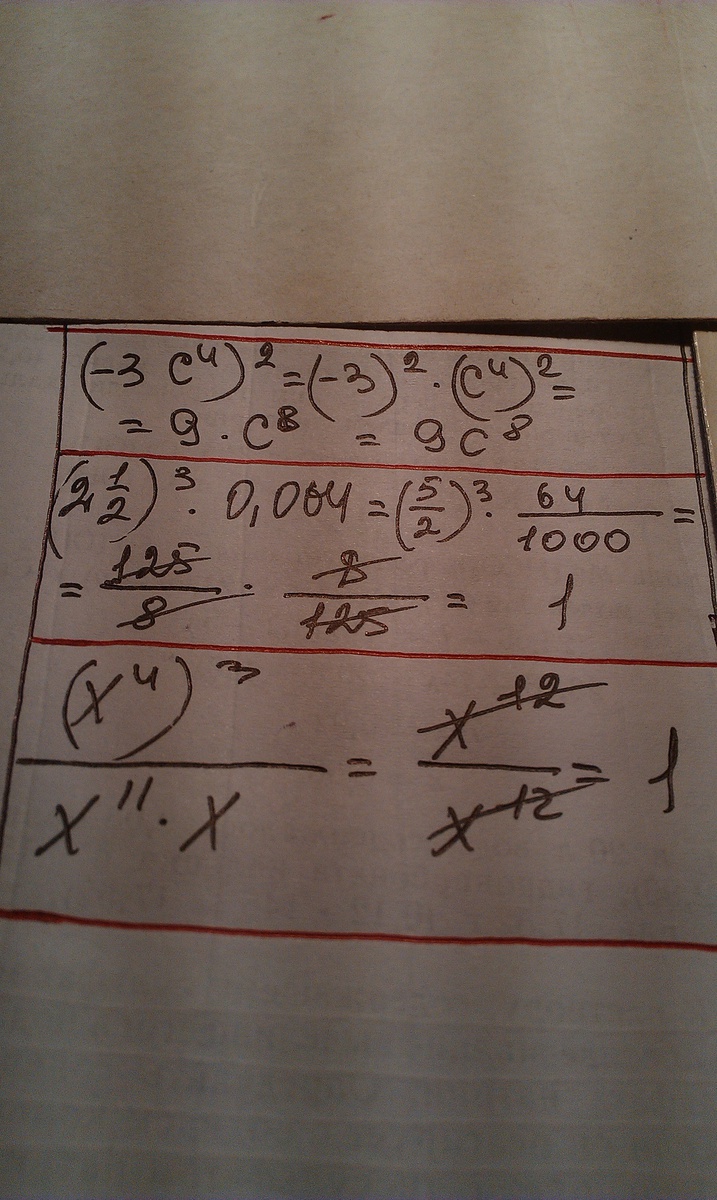 (-3 c⁴)² = (-3)² · (c⁴)² =
= 9 · c⁸ = 9c⁸
(2 1/2)³ · 0,064 = (5/2)³ · 64/1000 =
= 125/8 · 8/125 = 1
(x⁴)³ / x¹¹ · x = x¹² / x¹² = 1